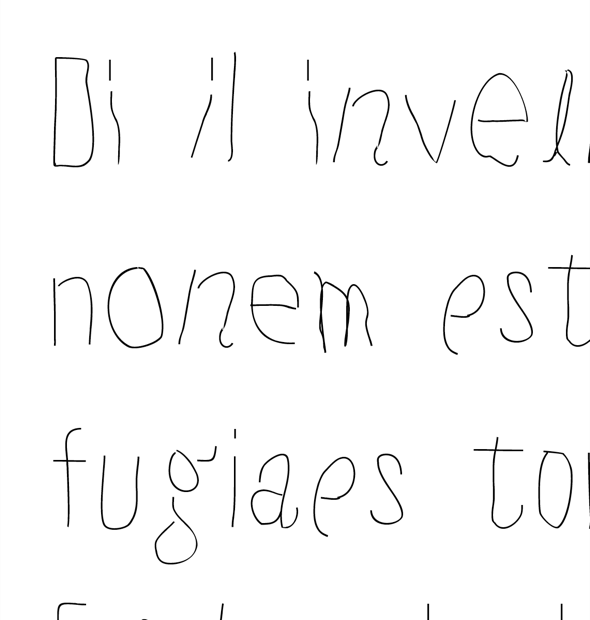 Di il invel
nonem est
fugiaes to